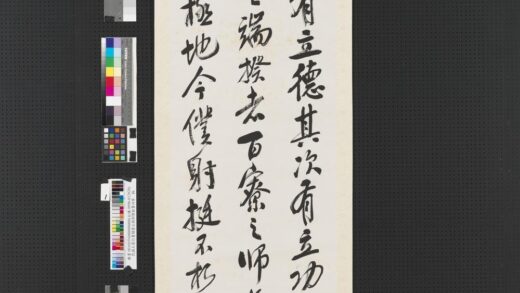 有立德其次有立功
端揆者百寮之師
極地今僕射挺不朽